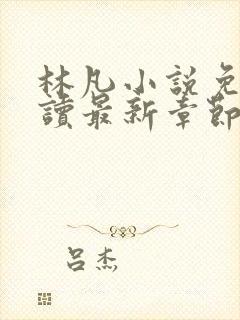 林凡小說免
讀最新章節
吕杰